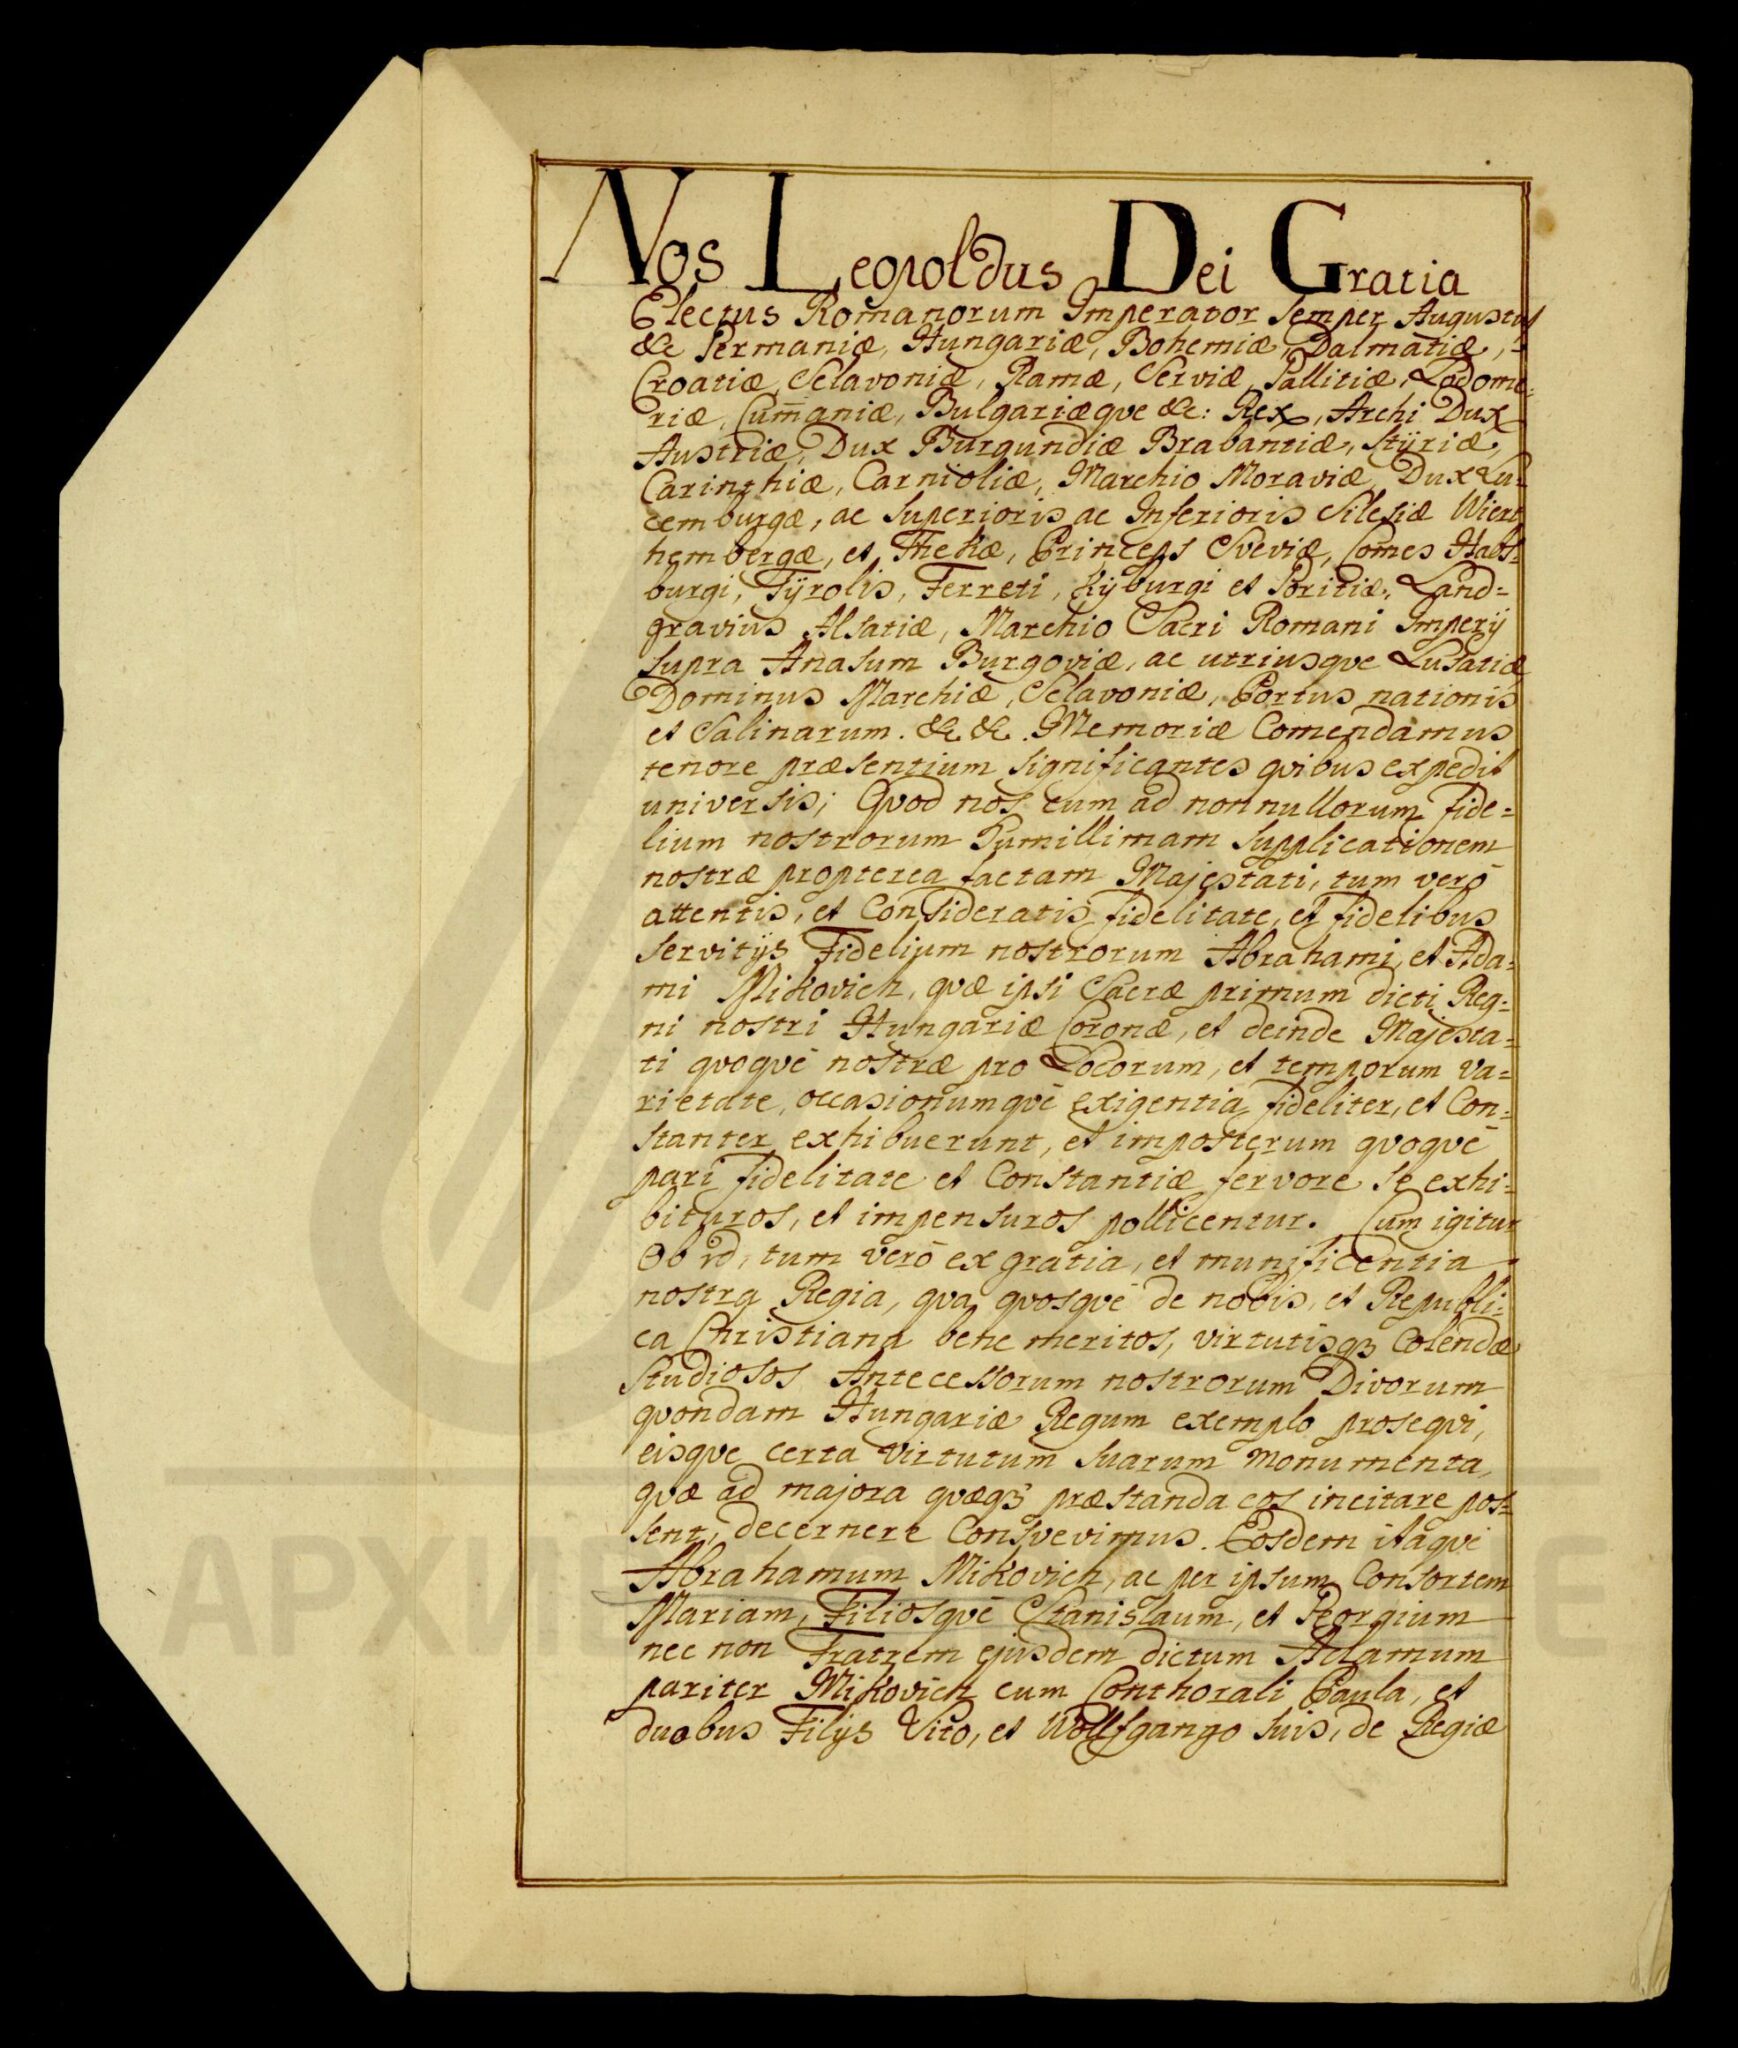 Nos Leopoldus Dei Gratia
Electus Romanorum Imperator semper Augustus
&c Germaniæ, Hungariæ, Bohemiæ, Dalmatiæ,
Croatiæ, Sclavoniæ, Ramæ, Serviæ, Gallitiæ, Lodome-
riæ, Cum̄aniæ, Bulgariæqve &c: Rex, Archi Dux
Austriæ, Dux Burgundiæ Brabantiæ, Stÿriæ,
Carinthiæ, Carnioliæ, Marchio Moraviæ, Dux Lu-
cemburgæ, ac Superioris ac Inferioris Silesiæ Wiert
hembergæ, et Thekæ, Princeps Sveviæ, Com̄es Habs-
burgi, Tÿrolis, Ferreti, Kÿburgi et Goritiæ, Land=
gravius Alsatiæ, Marchio Sacri Romani Imperÿ
supra Anasum Burgoviæ, ac utriusqve Lusatiæ
Dominus Marchiæ, Sclavoniæ, Portus nationis
et Salinarum. &c &c. Memoriæ Comendamus
tenore præsentium significantes qvibus expedit
universis; Qvod nos cum ad nonnullorum fide=
lium nostrorum humillimam supplicationem
nostræ propterea factam Majestati, tum verō
attentis, et Consideratis fidelitate, et fidelibus
servitÿs Fidelium nostrorum Abrahami, et Ada=
mi Mikovich, qvæ ipsi Sacræ primum dicti Reg=
ni nostri Hungariæ Coronæ, et deinde Majesta=
ti qvoqvē nostræ pro Locorum, et temporum va=
rietate, occasionumqvē exigentia fideliter, et Con=
stanter exhibuerunt, et imposterum qvoqvē
pari fidelitate et Constantiæ fervore se exhi=
bituros, et impensuros pollicentur. Cum igitur
Ob id, tum verō ex gratia, et munificentia
nostra Regia, qva qvosqvē de nobis, et Republi=
ca Christiana bene meritos, virtutisqꝫ Colendæ
Studiosos Antecessorum nostrorum Divorum
qvondam Hungariæ Regum exemplo proseqvi,
eisqve certa virtutum suarum monumenta,
qvæ ad majora qvæqꝫ præstanda eos incitare pos=
sent, decernere Consvevimus. Eosdem itaqvē
Abrahamum Mikovich, ac per ipsum Consortem
Mariam, Filiosqvē Stanislaum, et Georgium
nec non Fratrem ejusdem dictum Adamum
pariter Mikovich cum Conthorali Paula, et
duobus Filÿs Vito, et Wolffgango suis, de Regiæ